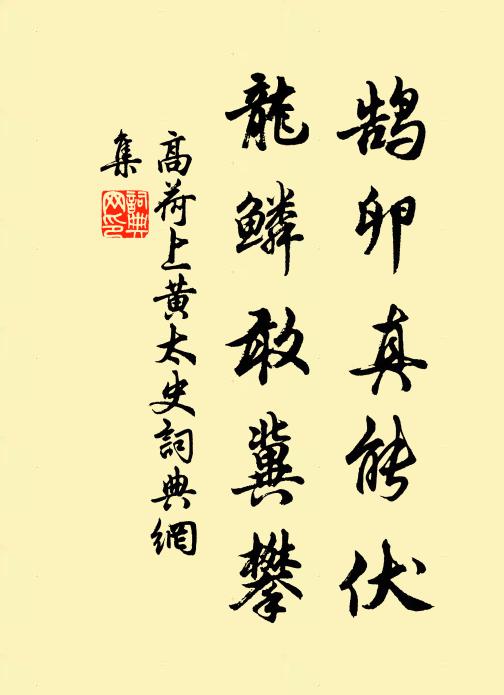 鹄卵真能伏
龍鱗敢冀攀
高荷上黃太史詞典網
集
詞典
网印